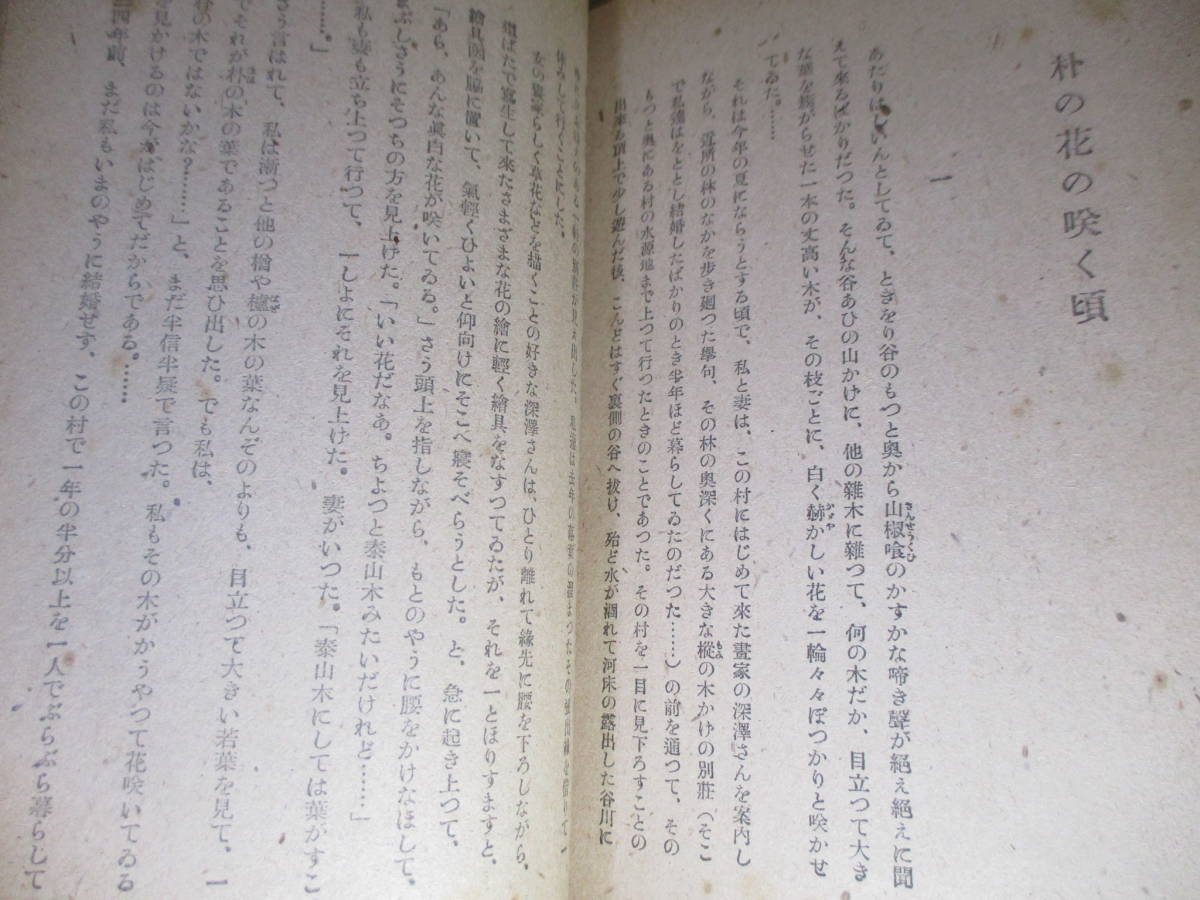 朴の花の咲く頃
一
あたりはしいんとしてゐて、ときをり谷のもつと奥から山椒喰のかすかな啼き聲が絶え絶えに聞
えて來るばかりだつた。そんな谷あひの山かげに、他の雜木に雜つて、何の木だか、目立つて大き
な葉を簇がらせた一本の丈高い木が、その枝ごとに、白く赫かしい花を一輪々々ぽつかりと咲かせ
てゐた。……
それは今年の夏にならうとする頃で、私と妻は、この村にはじめて來た畫家の深澤さんを案内し
ながら、近所の林のなかを歩き廻つた擧句、その林の奥深くにある大きな樅の木かげの別莊(そこ
で私達はをととし結婚したばかりのとき半年ほど暮らしてゐたのだつた……)の前を通つて、その
もつと奥にある村の水源地まで上つて行つたときのことであつた。その村を一目に見下ろすことの
出來る頂上で少し遊んだ後、こんどはすぐ裏側の谷へ拔け、殆ど水が涸れて河床の露出した谷川に
休みして行くことにした。
女の畫家らしく草花などを描くことの好きな深澤さんは、ひとり離れて縁先に腰を下ろしながら、
道ばたで寫生して來たさまざまな花の繪に輕く繪具をなすつてゐたが、それを一とほりすますと、
繪具函を脇に置いて、氣輕くひよいと仰向けにそこへ寢そべらうとした。と、急に起き上つて、
「あら、あんな眞白な花が咲いてゐる。」さう頭上を指しながら、もとのやうに腰をかけなほして、
まぶしさうにそつちの方を見上げた。「いい花だなあ。ちよつと泰山木みたいだけれど……」
私も妻も立ち上つて行つて、一しよにそれを見上げた。妻がいつた。「泰山木にしては葉がすこ
……。」
さう言はれて、私は漸つと他の楢や櫨の木の葉なんぞのよりも、目立つて大きい若葉を見て、一
でそれが朴の木の葉であることを思ひ出した。でも私は、
朴の木ではないかな?……」と、まだ半信半疑で言つた。私もその木がかうやつて花咲いてゐる
を見かけるのは今がはじめてだからである。……
三四年前、まだ私もいまのやうに結婚せず、この村で一年の半分以上を一人でぶらぶら暮らして